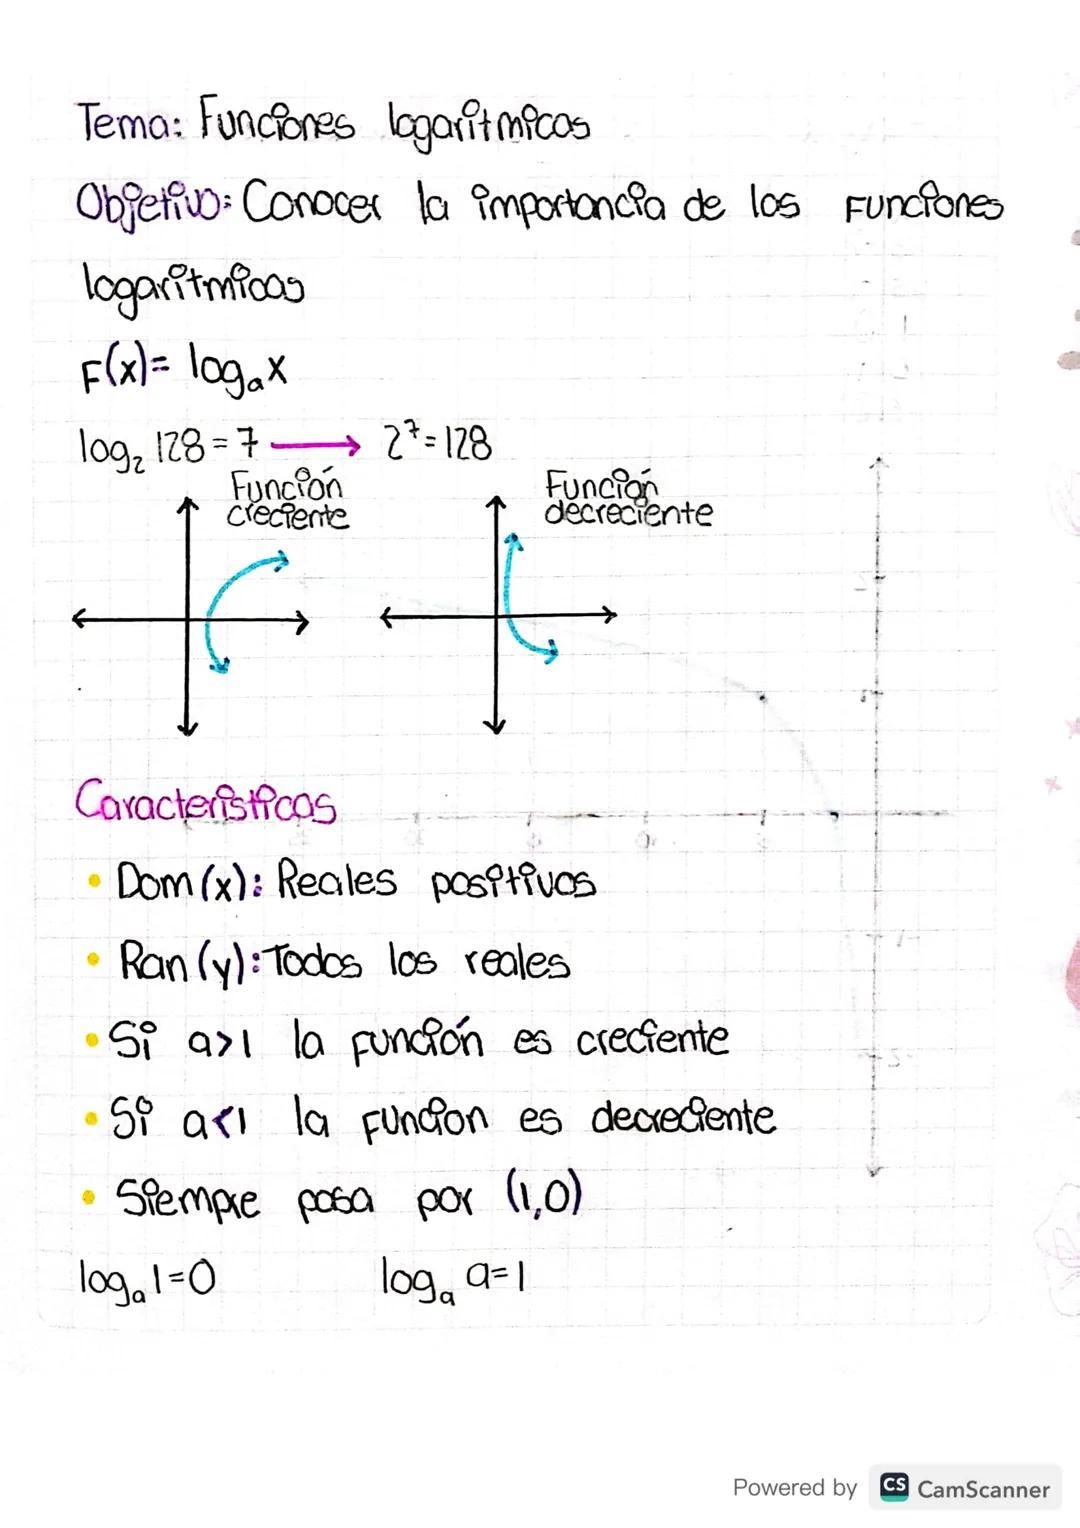 Tema: Funciones logaritmicas
Objetivo: Conocer la importancia de las funciones
logaritmicas
F(x)= logₐx
log₂ 128 = 7 → 2⁷ = 128
Función
creciente
Función
decreciente
Caracteristicas
• Dom (x): Reales positivos
• Ran (y): Todos los reales
• Si a>1 la función es creciente
• Si a<1 la funcion es decreciente
• Siempre pasa por (1,0)
logₐ 1=0 logₐ a=1
Powered by CS CamScanner